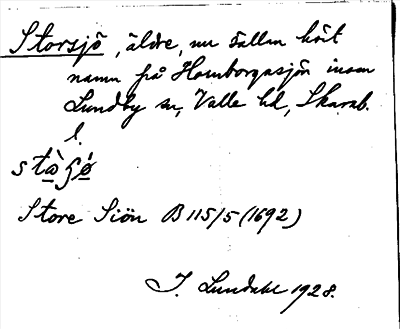 Storsjö, äldre, nu sällan hört
namn på Hornborgasjön inom
Lundby sn, Valle hd, Skarab.
l.
Store Siön B 115/5 (1692)
J. Lundahl 1928.